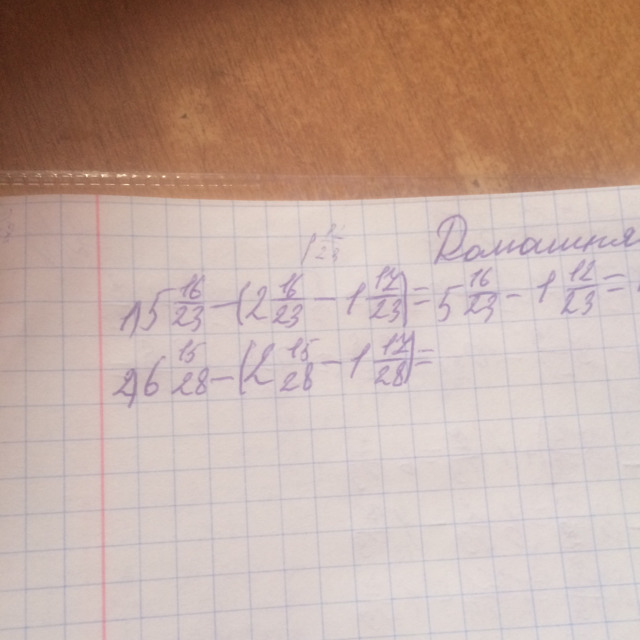 Домашня
1) 5 16/23 - (2 6/23 - 1 12/23) = 5 16/23 - 1 12/23 =
2) 6 15/28 - (2 15/28 - 1 17/28) =